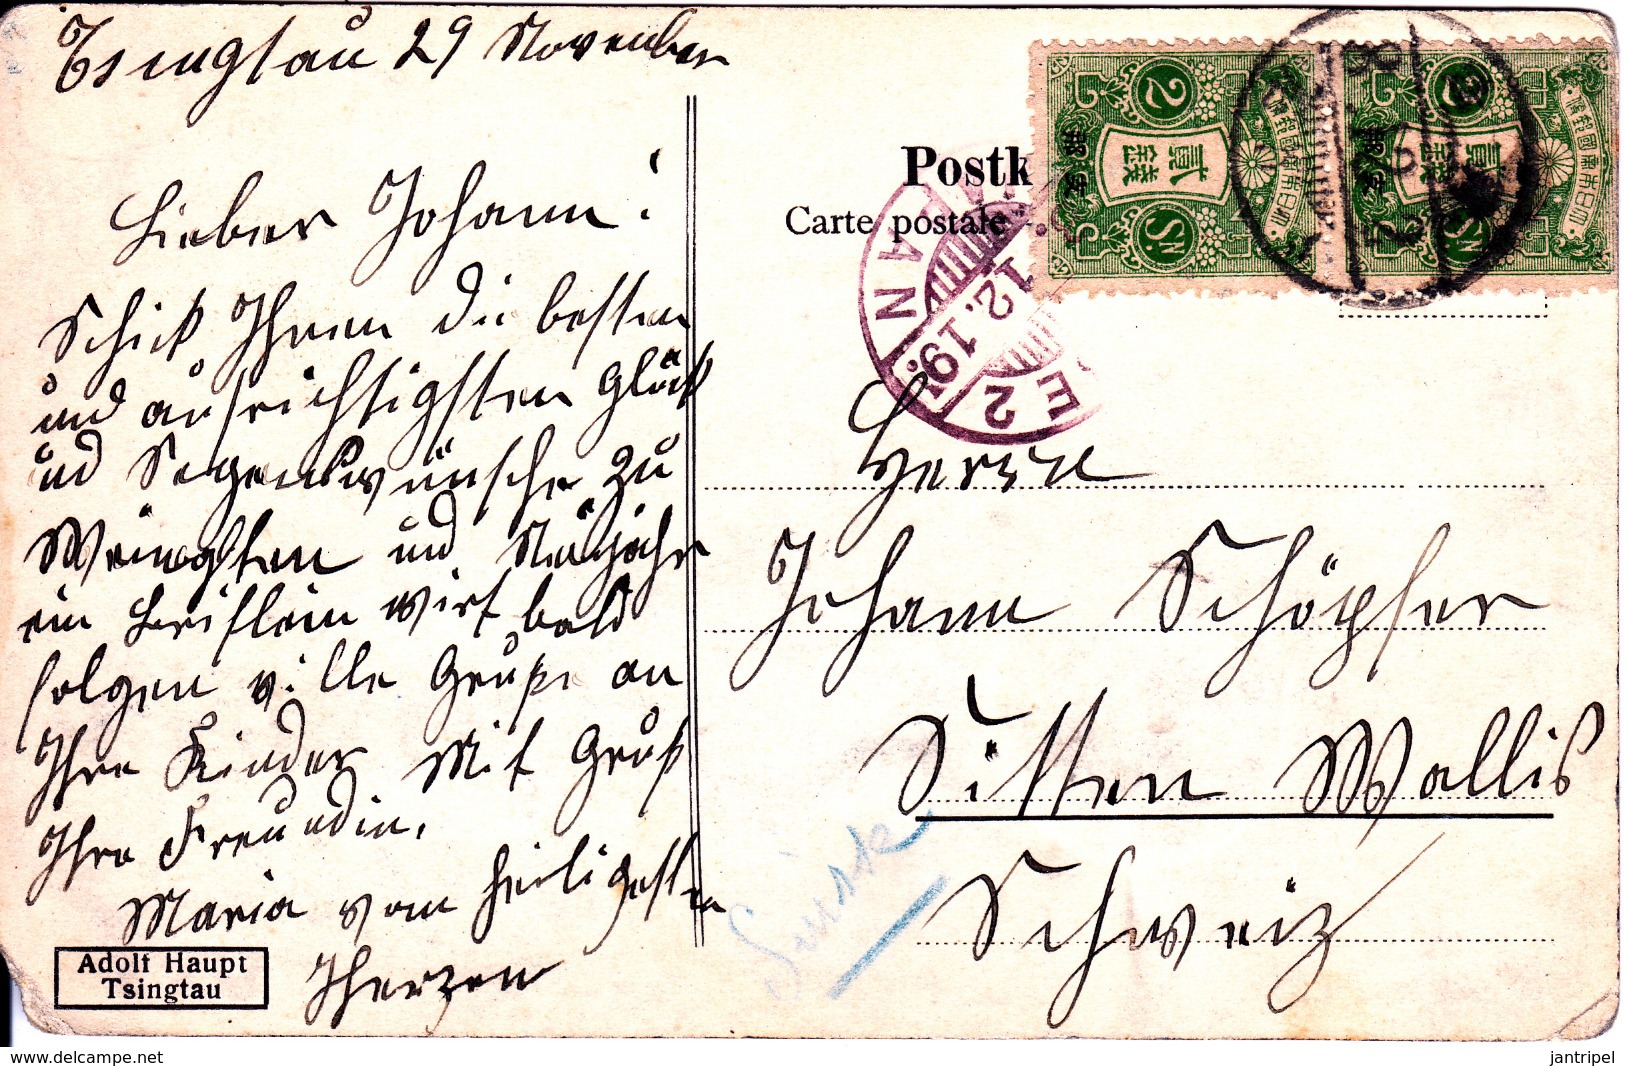 Tsingtau 29 November
Lieber Johann!
Schick Ihnen die besten
und aufrichtigsten Glück
und Segenswünsche zu
Weinachten und Neujahr
ein Brieflein wirt bald
folgen ville Grüße an
Ihre Kinder Mit Gruß
Ihre Freundin.
Maria vom heiligesten
Herzen
Adolf Haupt
Tsingtau
Postk
Carte postale
2
貳錢
大日本帝國郵便
支那
Sn.
2
貳錢
大日本帝國郵便
支那
Sn.
12.19
E 2
Herrn
Johann Schöpfer
Sitten Wallis
Schweiz
delcampe.net
jantripel